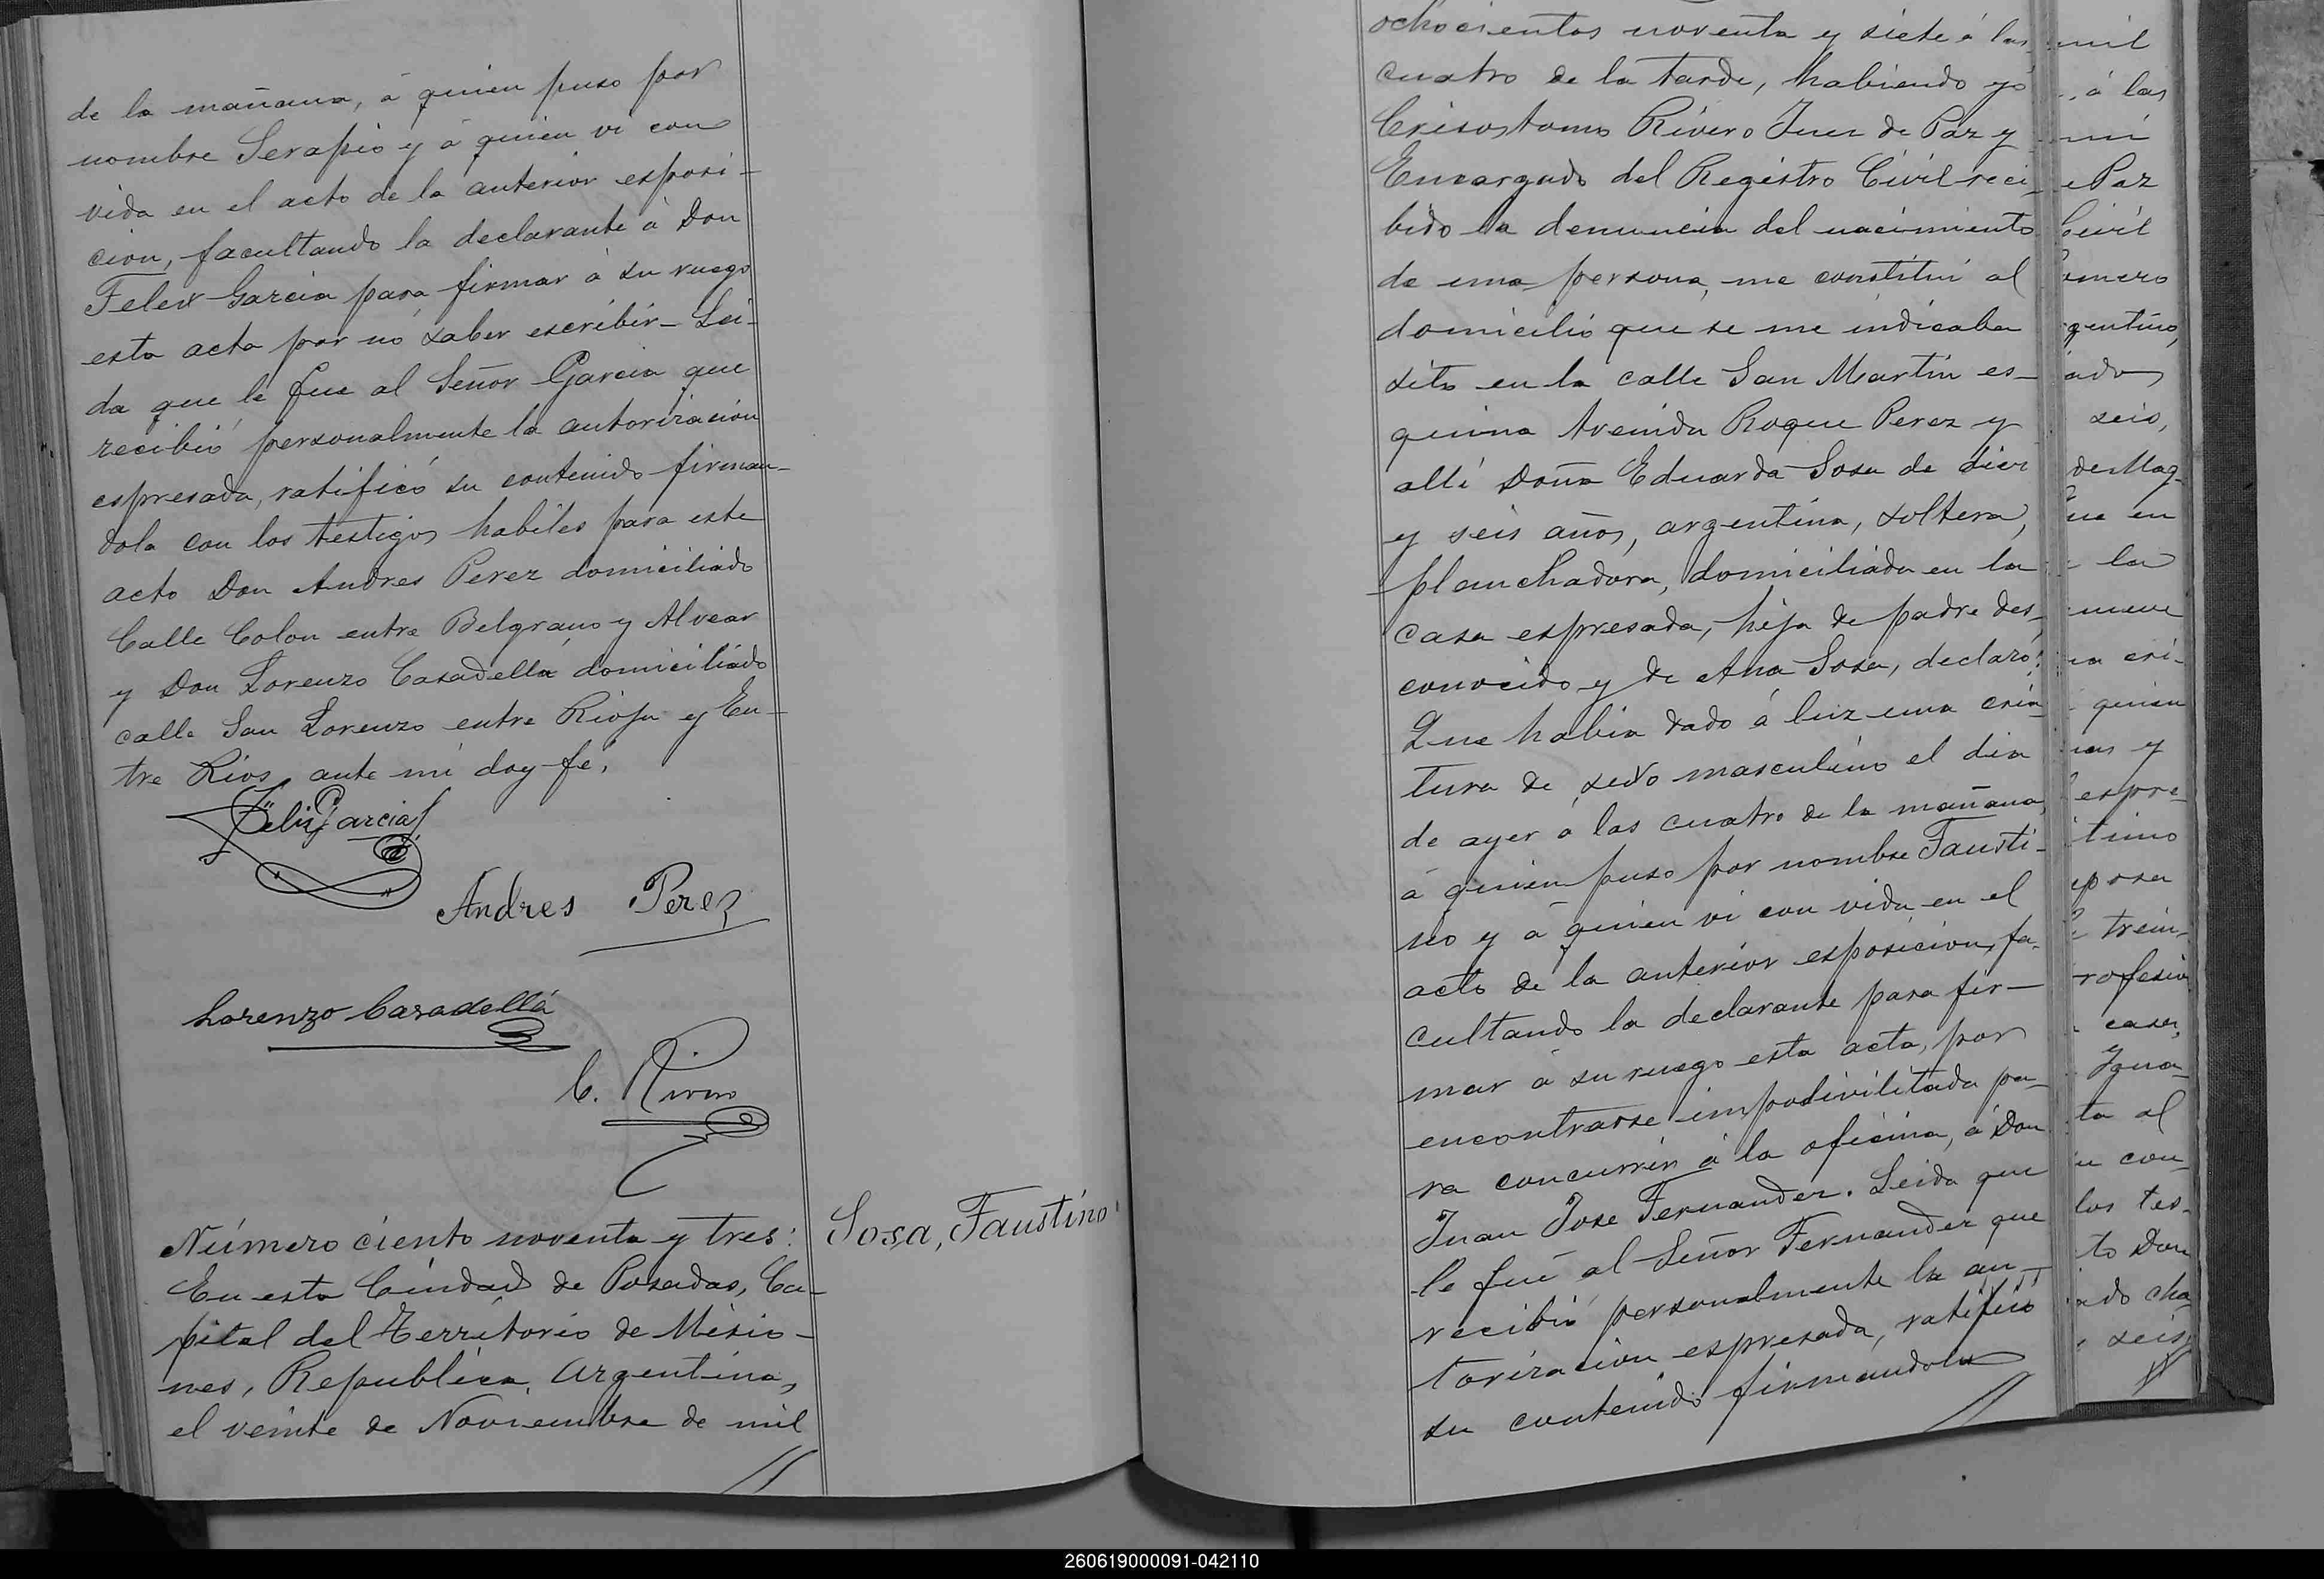 de la mañana, á quien puso por
nombre Serapio y á quien vi con
vida en el acto de la anterior esposi-
cion, facultando la declarante á Don
Felix Garcia para firmar á su ruego
esta acta por no saber escribir - Lei-
da que le fue al Señor Garcia que
recibió personalmente la autorizacion
espresada, ratificó su contenido firman-
dola con los testigos habiles para este
acto Don Andres Perez domiciliado
Calle Colon entre Belgrano y Alvear
y Don Lorenzo Casadellá domiciliado
calle San Lorenzo entre Rioja y En-
tre Rios, ante mi doy fé.
Felix Garcia
Andres Perez
Lorenzo Casadellá
C. Rivero
Número ciento noventa y tres:
Sosa, Faustino
En esta Ciudad de Posadas, Ca-
pital del Territorio de Misio-
nes, Republica Argentina,
el veinte de Noviembre de mil
ochocientos noventa y siete á las
cuatro de la tarde, habiendo yo
Crisostomo Rivero Juez de Paz y
Encargado del Registro Civil reci-
bido la denuncia del nacimiento
de una persona, me constitui al
domicilio que se me indicaba
sito en la calle San Martin es-
quina Avenida Roque Perez y
alli Doña Eduarda Sosa de diez
y seis años, argentina, soltera,
planchadora, domiciliada en la
casa espresada, hija de padre des-
conocido y de Ana Sosa, declaró:
Que habia dado á luz una cria-
tura de sexo masculino el dia
de ayer á las cuatro de la mañana,
á quien puso por nombre Fausti-
no y á quien vi con vida en el
acto de la anterior esposicion, fa-
cultando la declarante para fir-
mar á su ruego esta acta, por
encontrarse imposivilitada pa-
ra concurrir á la oficina, á Don
Juan Jose Fernandez. Leida que
le fué al Señor Fernandez que
recibió personalmente la au-
torizacion espresada, ratificó
su contenido firmandola
mil
á las
mi
e Paz
Civil
omero
gentino,
ado
seis,
de Mag-
ue en
la
nueve
na cri-
quien
nas y
espre-
timo
eposa
trein-
rofesion
casa,
Igna-
ta al
u con-
los tes-
to Don
ado cha-
seis
260619000091-042110